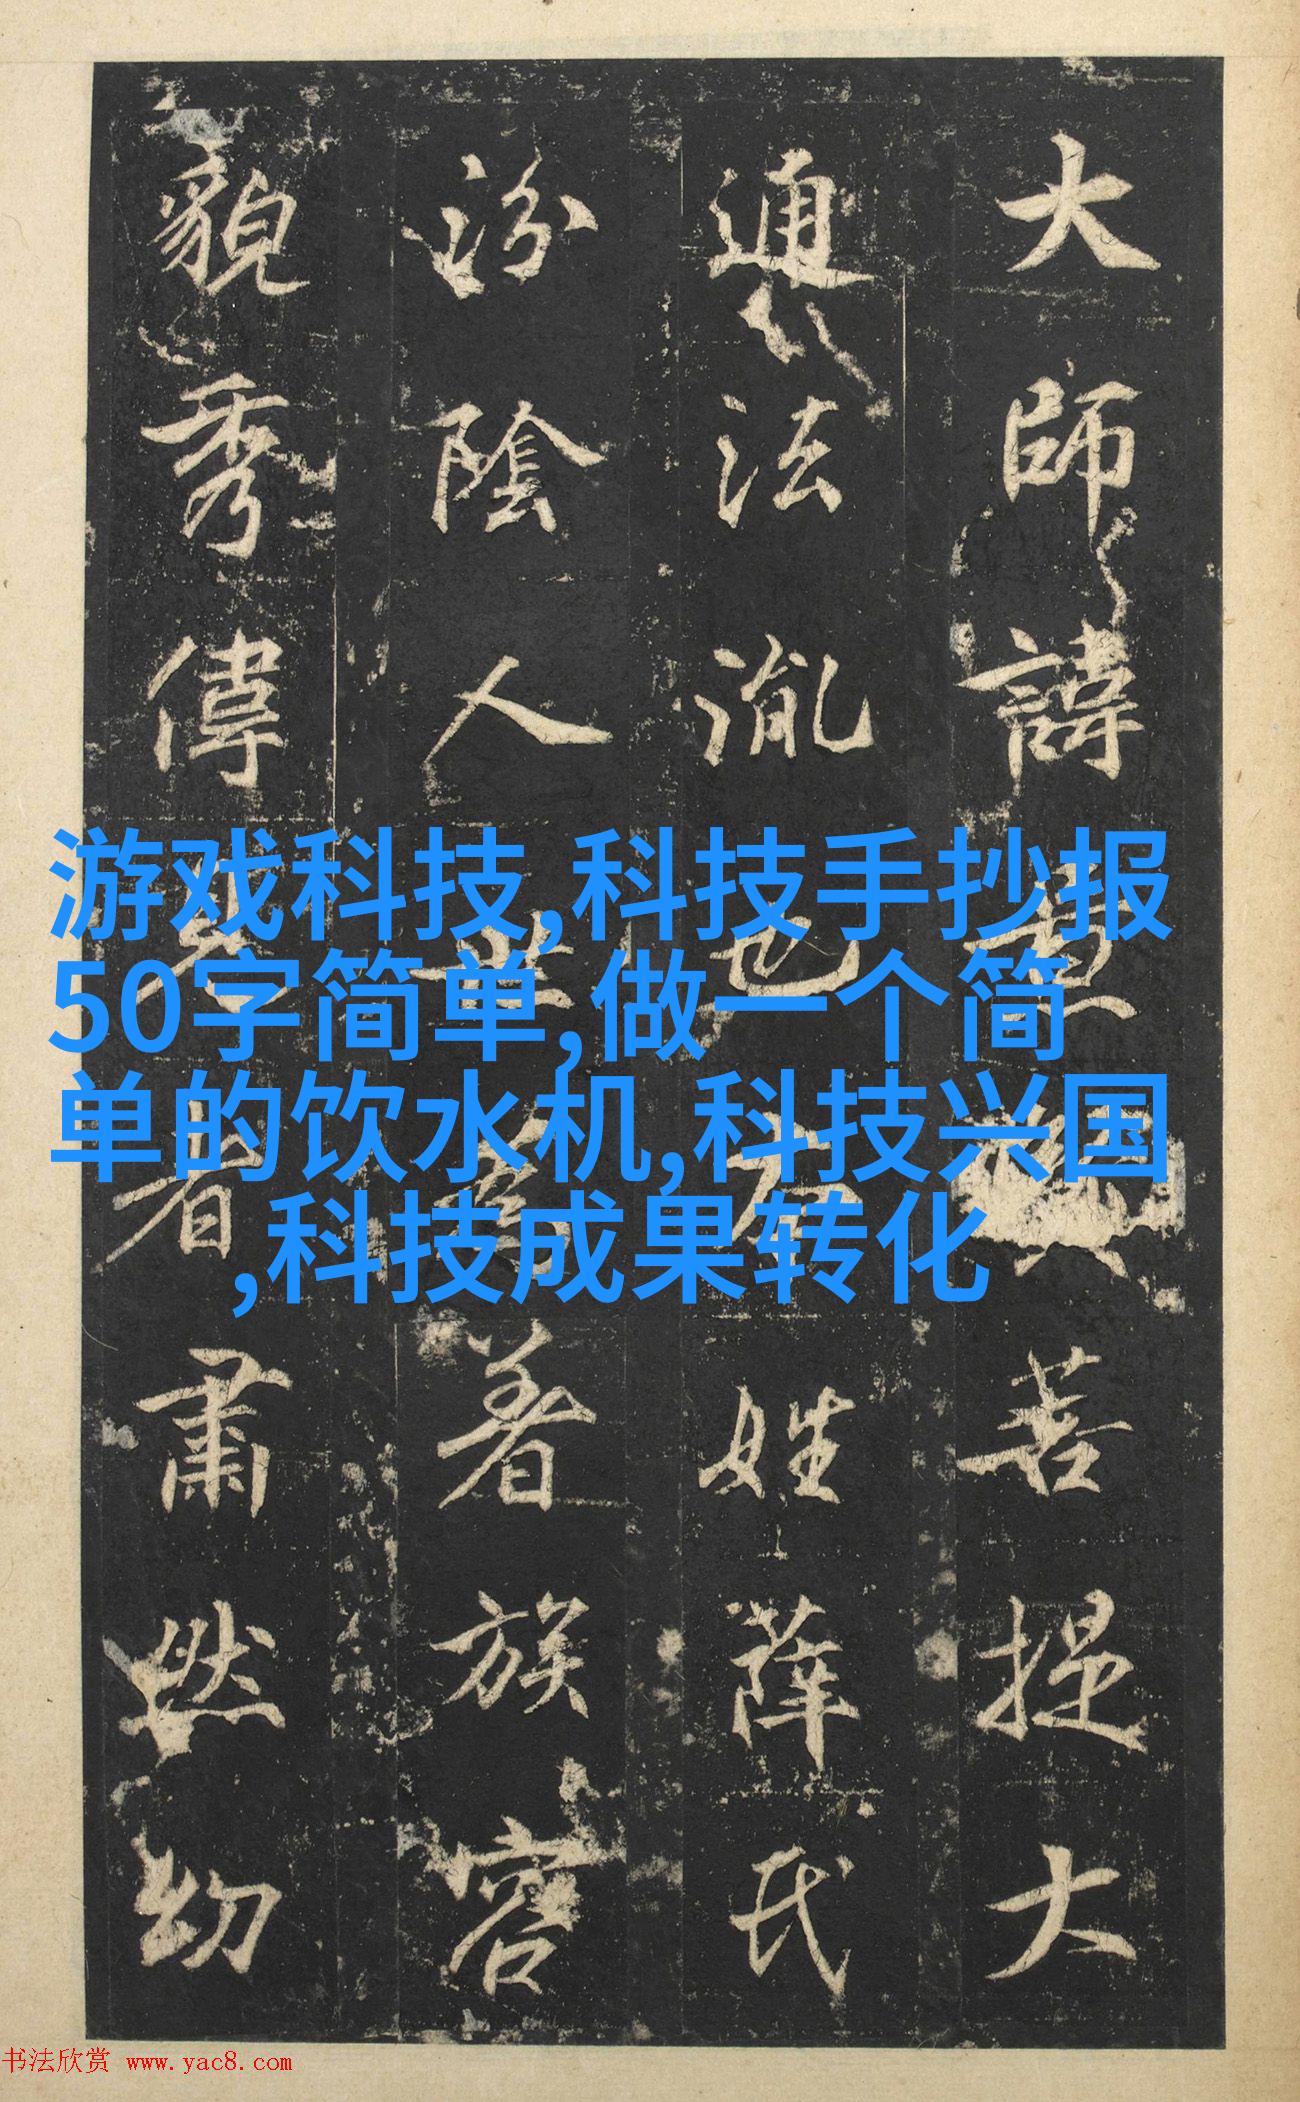 大師諱惠菩提大
通法胤也姓薛氏
汾陰人世為著族容
貌秀偉見者肅然幼
游戏科技,科技手抄报
50字简单,做一个简
单的饮水机,科技兴国
,科技成果转化
书法欣赏 www.yac8.com